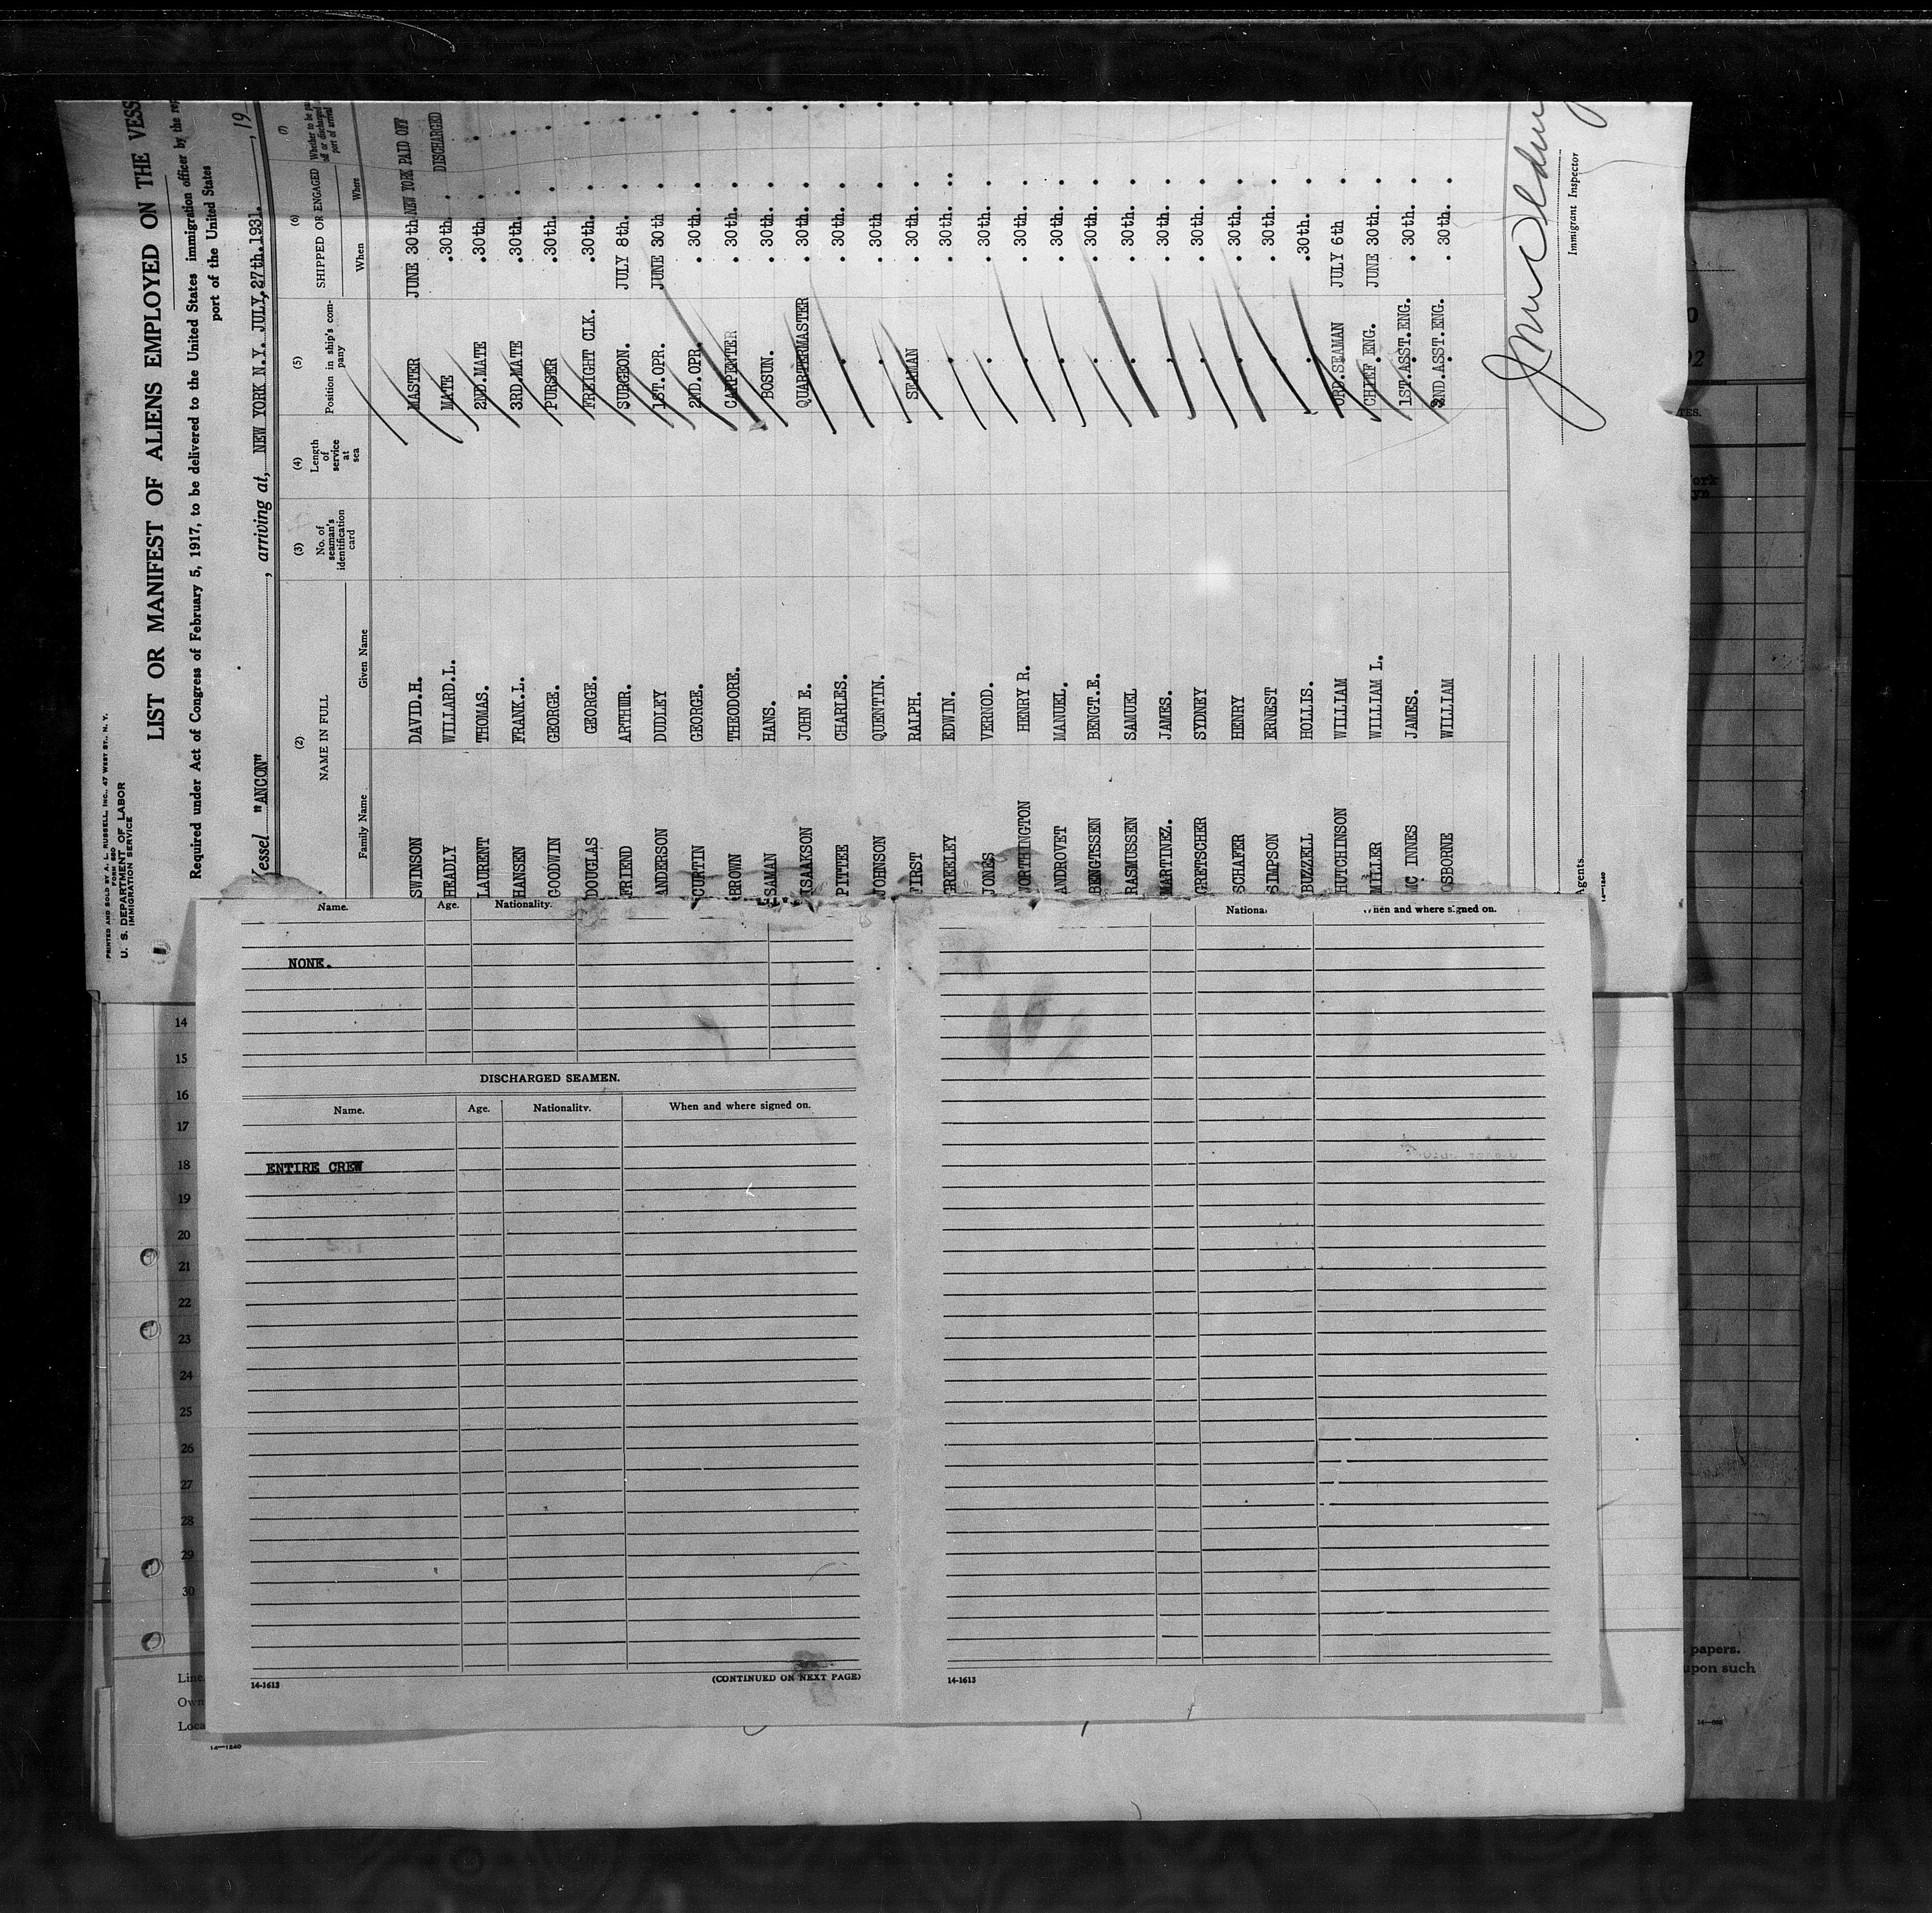 PRINTED AND SOLD BY A. L. RUSSELL, INC., 47 WEST ST., N. Y.
FORM 680
U. S. DEPARTMENT OF LABOR
IMMIGRATION SERVICE
LIST OR MANIFEST OF ALIENS EMPLOYED ON THE VESS
Required under Act of Congress of February 5, 1917, to be delivered to the United States immigration officer by the rep
port of the United States
Vessel "ANCON", arriving at, NEW YORK N.Y. JULY,27th.1931., 19
(2) (3) (4) (5) (6) (7)
NAME IN FULL No. of seaman's identification card Length of service at sea Position in ship's company SHIPPED OR ENGAGED Whether to be
Family Name Given Name When Where
SWINSON DAVID.H. MASTER JUNE 30th NEW YORK PAID OFF
HEADLY WILLARD.L. MATE .30th. . DISCHARGED
LAURENT THOMAS. 2ND.MATE .30th. . .
HANSEN FRANK.L. 3RD.MATE .30th. . .
GOODWIN GEORGE. PURSER .30th. . .
DOUGLAS GEORGE. FREIGHT CLK. .30th. . .
FRIEND ARTHUR. SURGEON. JULY 8th. . .
ANDERSON DUDLEY 1ST.OPR. JUNE 30th . .
CURTIN GEORGE. 2ND.OPR. . 30th. . .
BROWN THEODORE. CARPENTER . 30th. . .
SAMAN HANS. BOSUN. . 30th. . .
ISAKSON JOHN E. QUARTERMASTER . 30th. . .
PITTEE CHARLES. . . 30th. . .
JOHNSON QUENTIN. . . 30th . .
FIRST RALPH. SEAMAN . 30th. . .
REELEY EDWIN. . . 30th. .. .
JONES VERNOD. . . 30th. .
ORTHINGTON HENRY R. . . 30th. .
ANDROVET MANUEL. . . 30th. .
BENGTSSEN BENGT.E. . . 30th. .
RASMUSSEN SAMUEL . . 30th. .
MARTINEZ. JAMES. . . 30th. .
GRETSCHER SYDNEY . . 30th. .
SCHAFER HENRY . . 30th. .
SIMPSON ERNEST . . 30th. .
BUZZELL HOLLIS. . .30th. .
HUTCHINSON WILLIAM ORD.SEAMAN JULY 6th .
MILLER WILLIAM L. CHIEF ENG. JUNE 30th. .
MC INNES JAMES. 1ST.ASST.ENG. . 30th. .
OSBORNE WILLIAM 2ND.ASST.ENG. . 30th. .
Immigrant Inspector
Agents
14—1240
Name. Age. Nationality.
NONE.
DISCHARGED SEAMEN.
Name. Age. Nationality. When and where signed on.
ENTIRE CREW
(CONTINUED ON NEXT PAGE)
14-1613
Nationa When and where signed on.
14-1613
14
15
16
17
18
19
20
21
22
23
24
25
26
27
28
29
30
Line
Own
Loca
14—1240
ork
yn
papers.
upon such